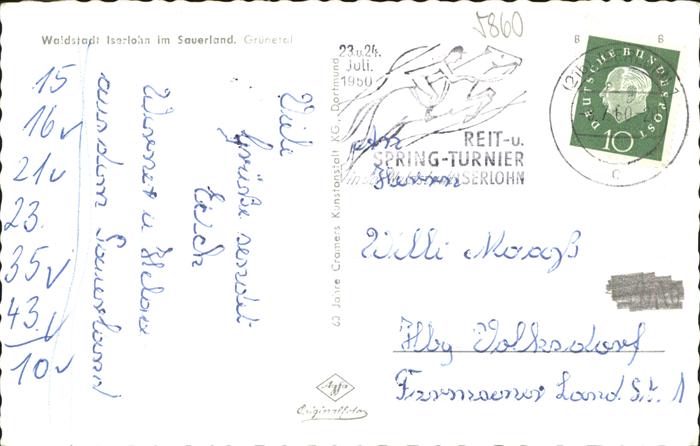 5860
Waldstadt Iserlohn im Sauerland. Grünetal
15
16
21
23.
35
43.
10
Viele
Grüße sendet
Euch
Werner u Helga
aus dem Sauerland
60 Jahre Cramers Kunstanstalt KG., Dortmund
23.u.24.
Juli.
1960
REIT-u.
SPRING-TURNIER
ISERLOHN
DEUTSCHE BUNDESPOST
10
An
Herrn
Willi Maaß
Hbg Volksdorf
Land Str. 1
Agfa
Originalfoto